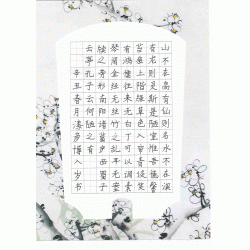 山不在高有仙则名水不在深
有龙则灵斯是陋室惟吾德馨
苔痕上阶绿草色入帘青谈笑
有鸿儒往来无白丁可以调素
琴阅金经无丝竹之乱耳无案
牍之劳形南阳诸葛庐西蜀子
云亭孔子云何陋之有
辛丑春月 博八岁书